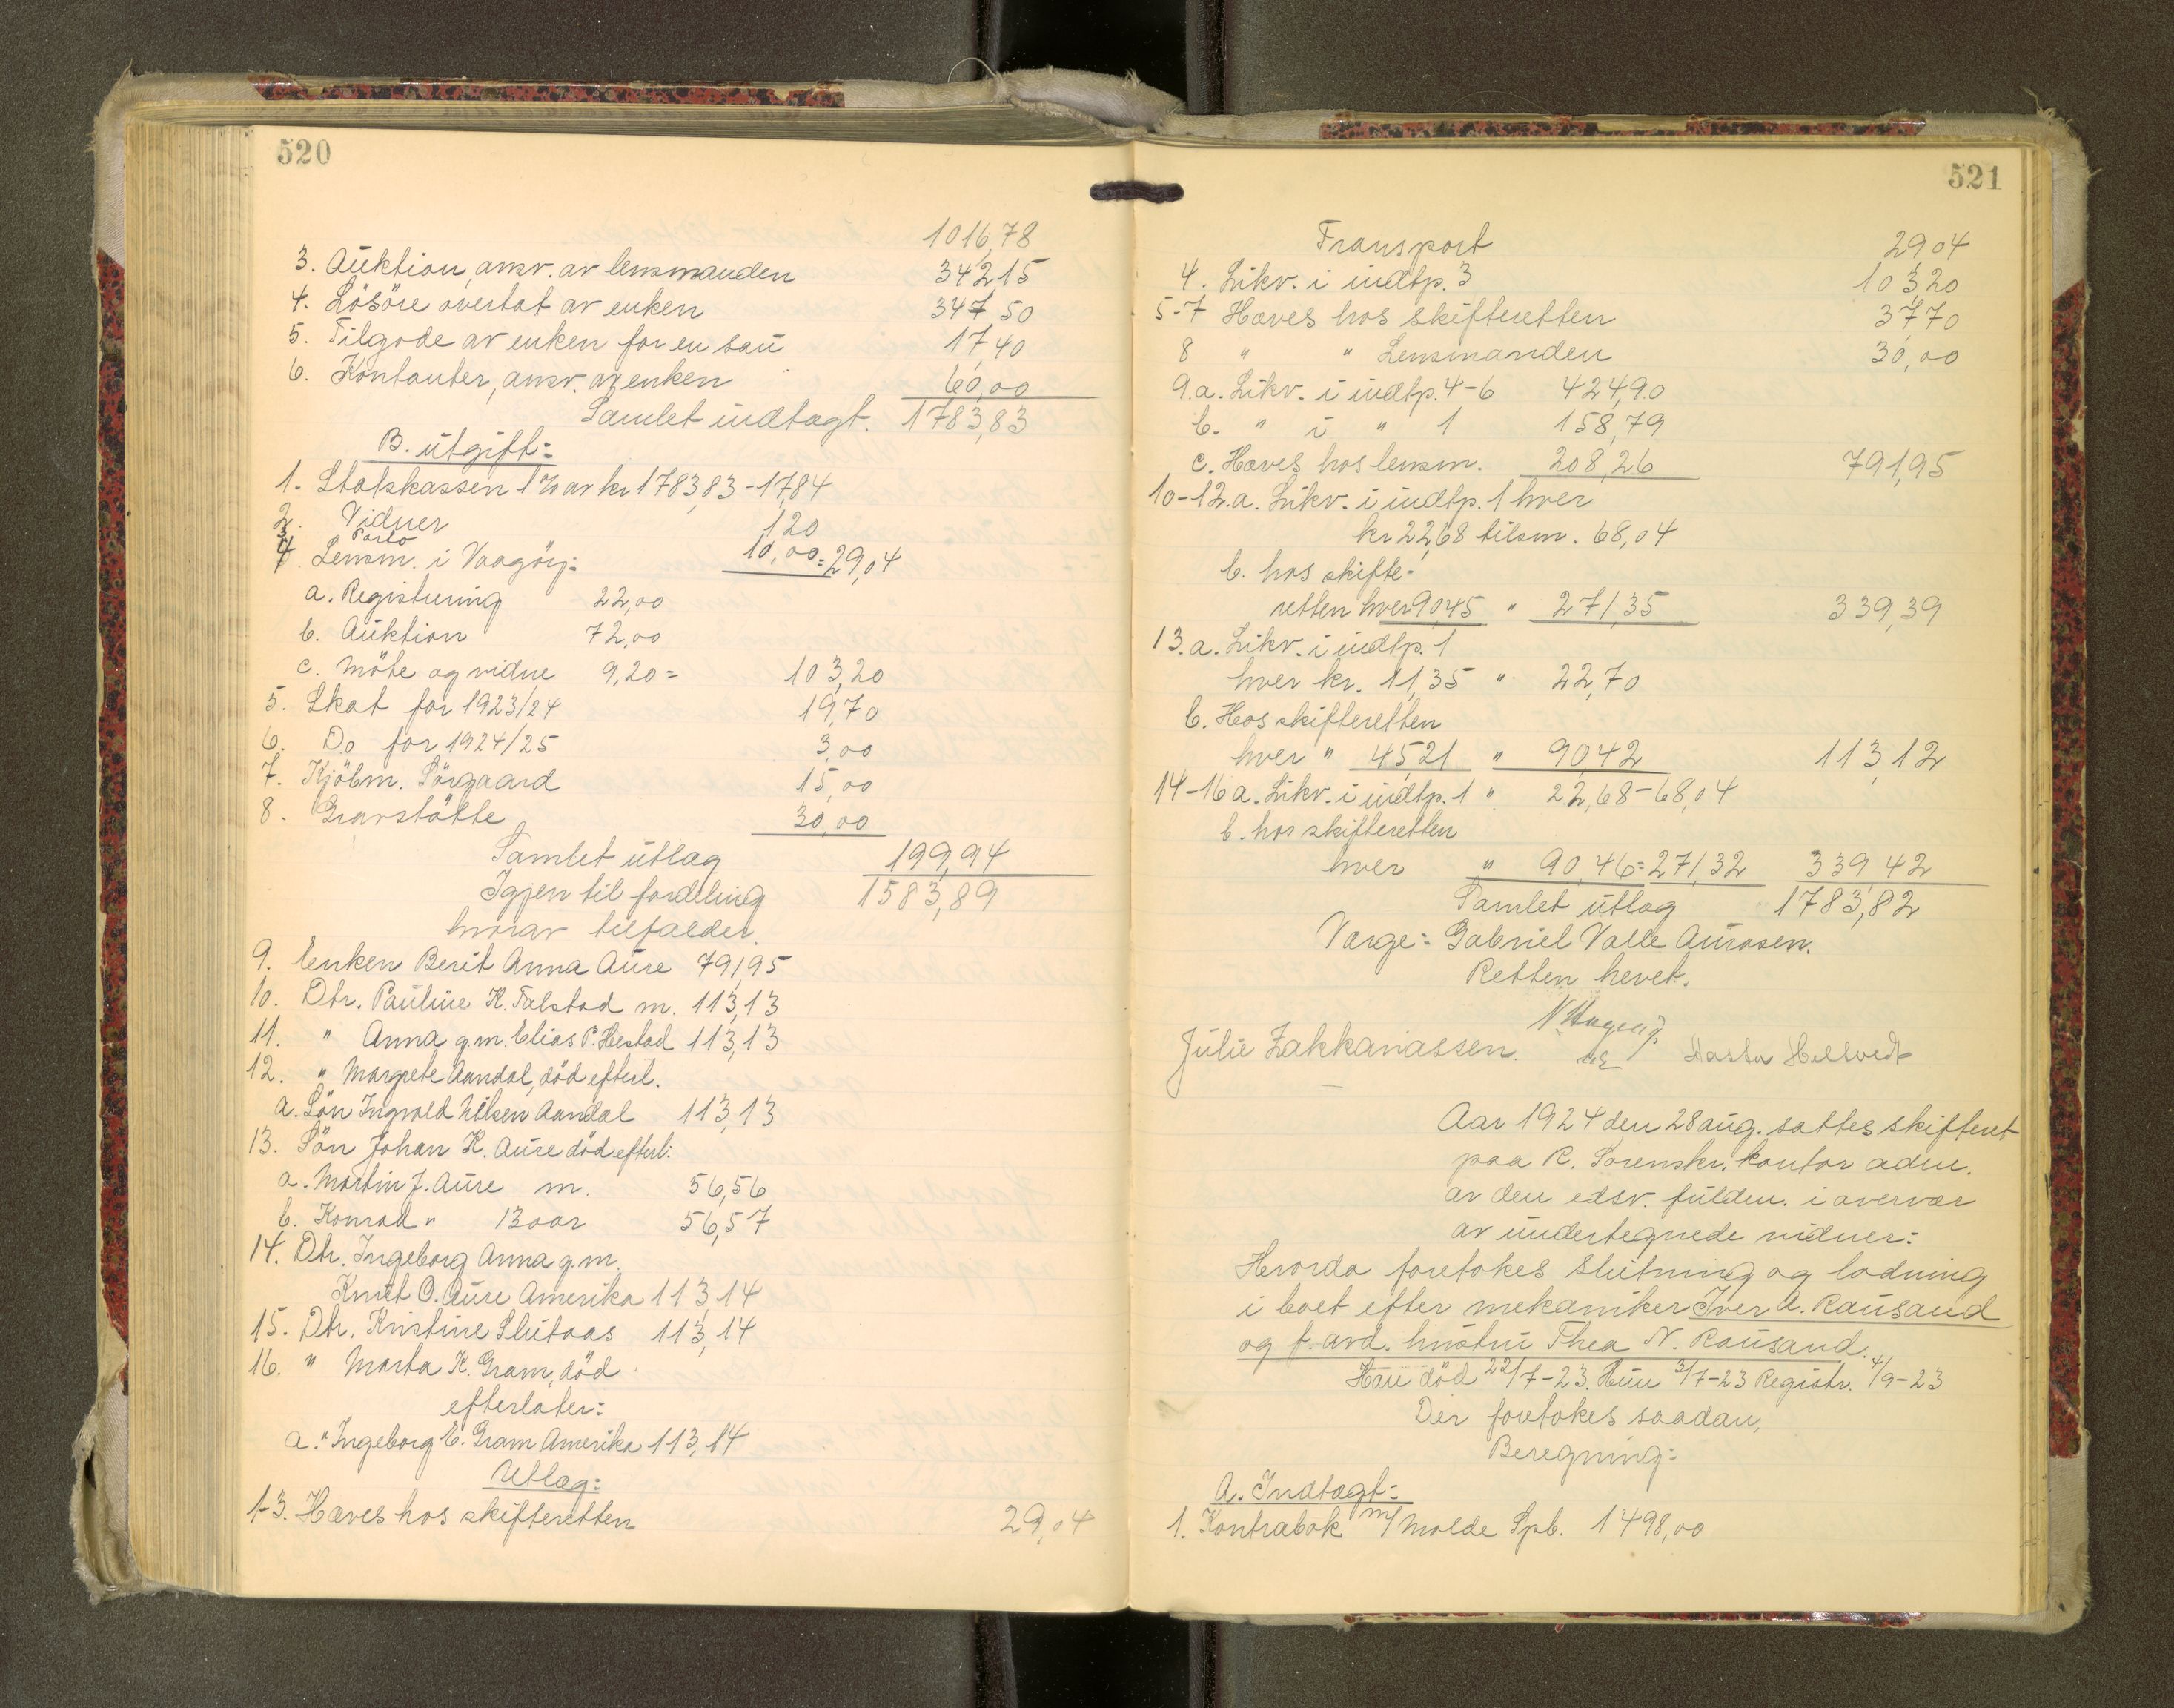 520
1016,78
3. Auktion, ansv. av lensmanden 342,15
4. Lösöre overtat av enken 347,50
5. Tilgode av enken for en sau 17,40
6. Kontanter, ansv. av enken 60,00
Samlet indtægt. 1783,83
B. utgift:
1. Statskassen 1% av kr 1783,83 - 17,84
2. Vidner 1,20
3. Porto 10,00 = 29,04
4. Lensm. i Vaagöy:
a. Registrering 22,00
b. Auktion 72,00
c. Möte og vidne 9,20 = 103,20
5. Skat for 1923/24 19,70
6. Do for 1924/25 3,00
7. Kjöbm. Sörgaard 15,00
8. Gravstötte 30,00
Samlet utlæg 199,94
Igjen til fordeling 1583,89
hvorav tilfalder.
9. Enken Berit Anna Aure 791,95
10. Dtr. Pauline K. Talstad m. 113,13
11. " Anna g.m. Elias P. Hestad 113,13
12. " Margrete Aandal, död efterl.
a. Sön Ingvald Nilsen Aandal 113,13
13. Sön Johan K. Aure död efterl:
a. Martin J. Aure m. 56,56
b. Konrad " 13 aar 56,57
14. Dtr. Ingeborg Anna g.m.
Knut O. Aure Amerika 113,14
15. Dtr. Kristine Slutaas 113,14
16. " Marta K. Gram, död
efterlater:
a. " Ingeborg E. Gram Amerika 113,14
Utlæg:
1-3. Hæves hos skifteretten 29,04
521
Transport 29,04
4. Likv. i indtp. 3 103,20
5-7 Hæves hos skifteretten 37,70
8 " " Lensmanden 30,00
9.a. Likv. i indtp. 4-6 424,90
b. " i " 1 158,79
c. Hæves hos lensm. 208,26 791,95
10-12.a. Likv. i indtp. 1 hver
kr 22,68 tilsm. 68,04
b. hos skifte-
retten hver 90,45 " 271,35 339,39
13.a. Likv. i indtp. 1
hver kr. 11,35 " 22,70
b. Hos skifteretten
hver " 45,21 " 90,42 113,12
14-16 a. Likv. i indtp. 1 " 22,68 - 68,04
b. hos skifteretten
hver " 90,46 = 271,32 339,42
Samlet utlæg 1783,82
Værge: Gabriel Valle Aurosen.
Retten hevet.
Julie Zakkariassen.
Aar 1924 den 28 aug. sattes skifteret
paa R. Sorenskr. kontor adm.
av den edsv. fuldm. i overvær
av undertegnede vidner:
Hvorda foretokes slutning og lodning
i boet efter mekaniker Iver A. Rausand
og f. avd. hustru Thea N. Rausand.
Han död 22/7-23. Hun 3/7-23 Registr. 4/9-23
Der foretokes saadan,
Beregning:
A. Indtægt:
1. Kontrabok m/ Molde Spb. 1498,00